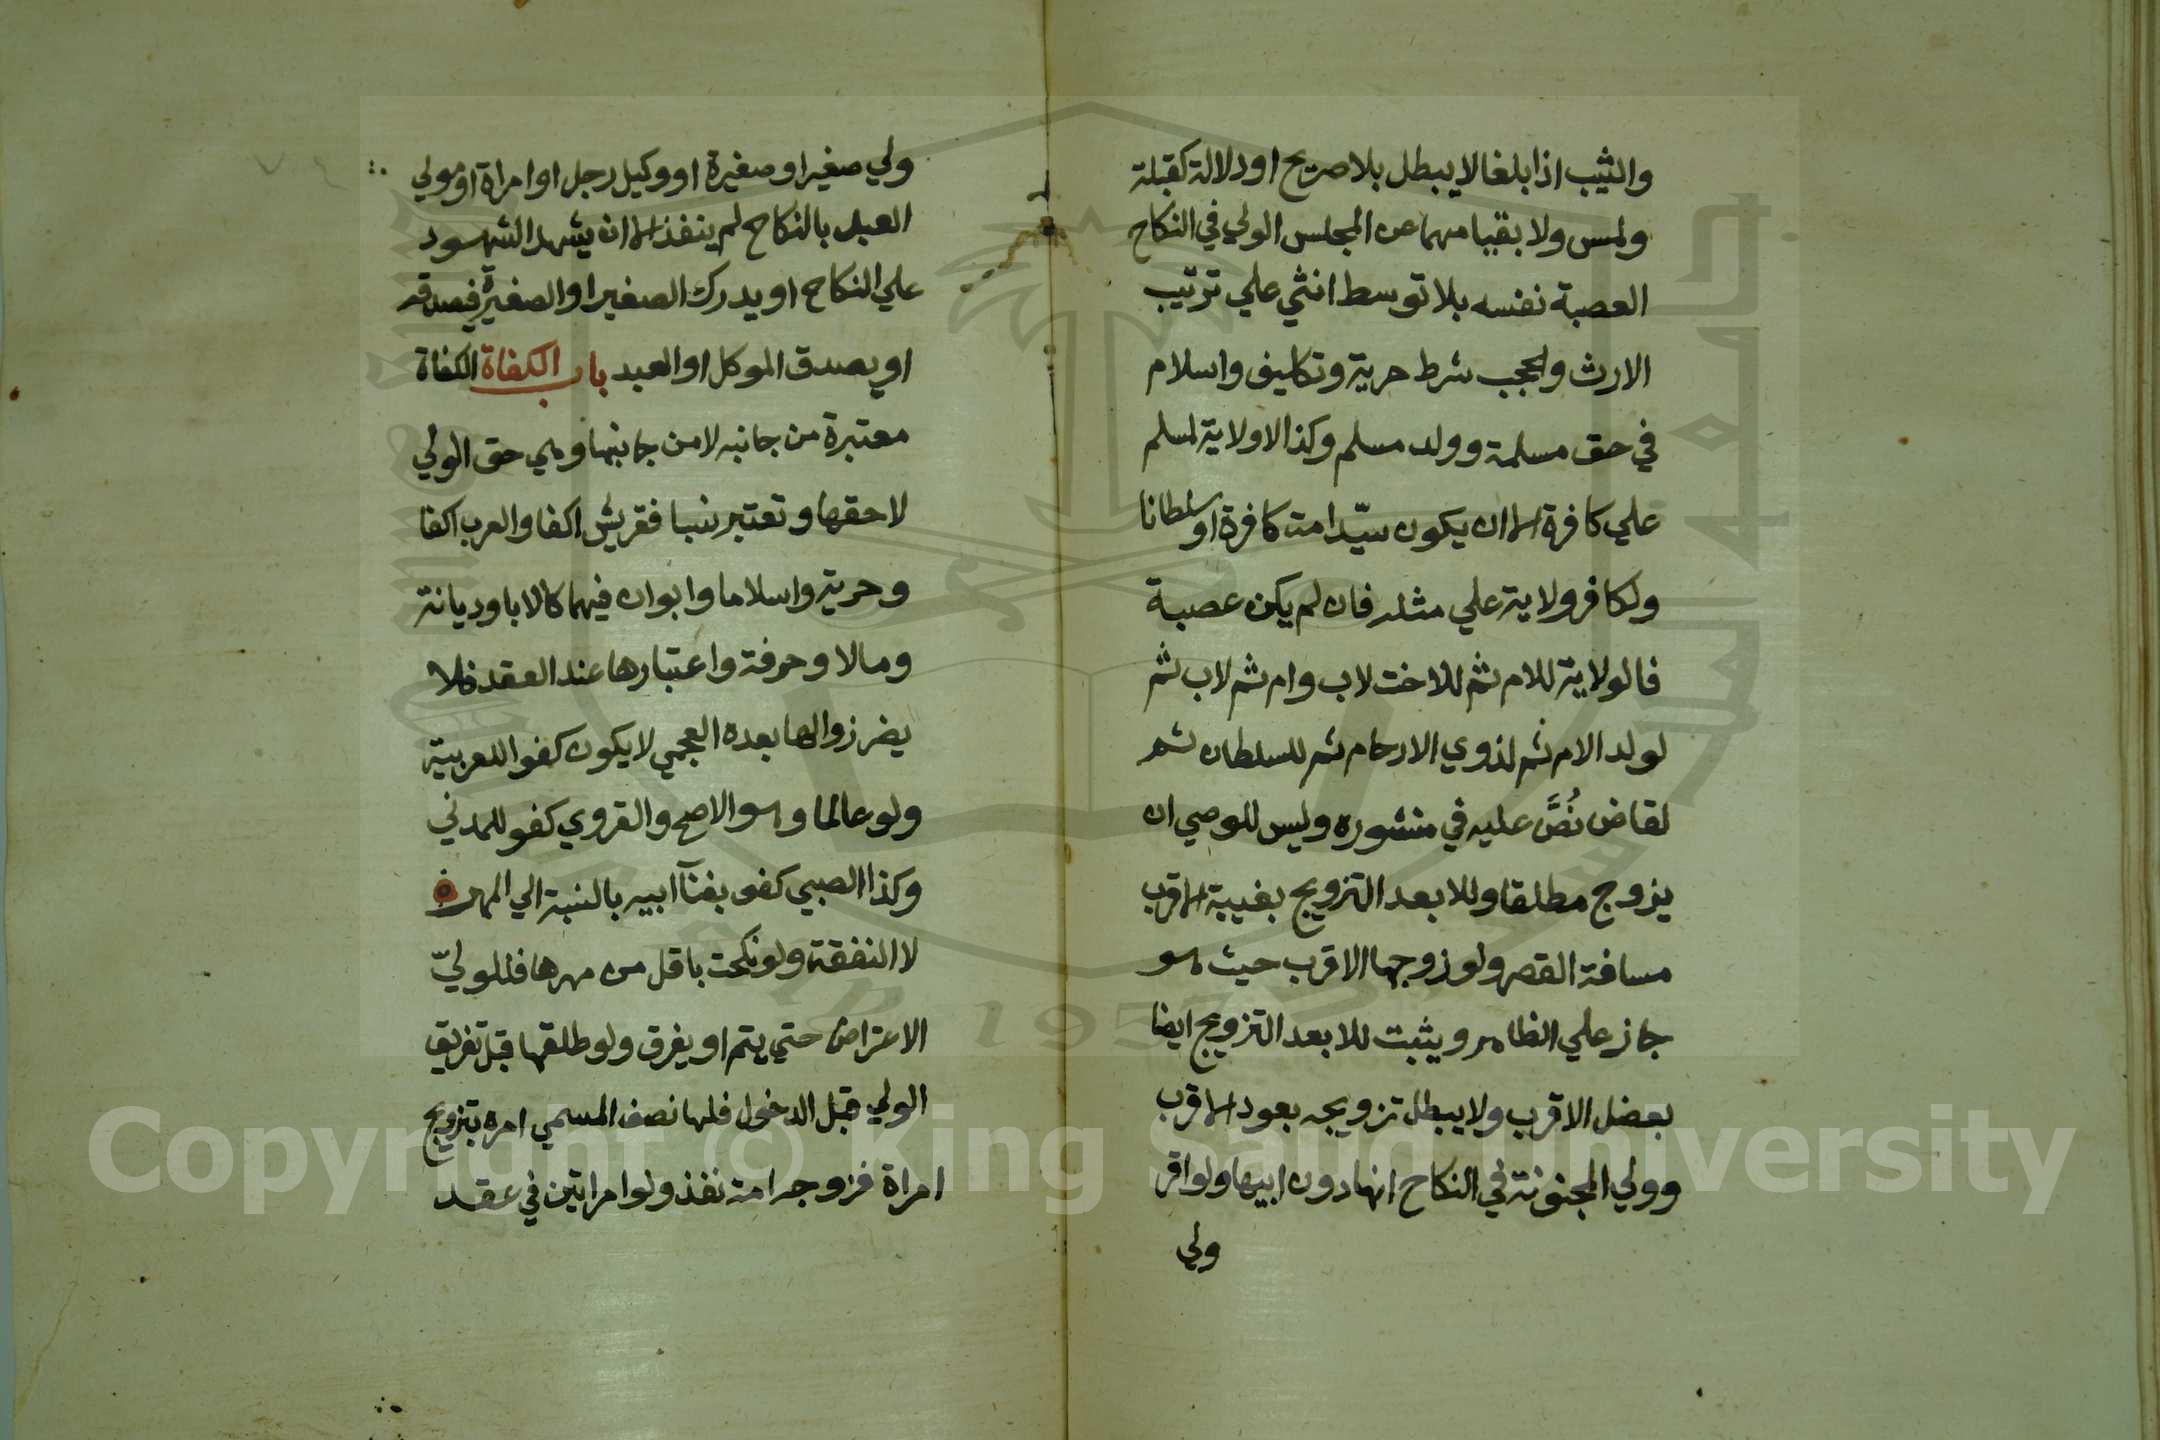 والثيب اذا بلغا لا يبطل بلا صريح او دلالة كقبلة
ولمس ولا بقيامهما عن المجلس الولي في النكاح
العصبة نفسه بلا توسط انثي علي ترتيب
الارث والحجب شرط حرية وتكليف واسلام
في حق مسلمة وولد مسلم وكذا لا ولاية لمسلم
علي كافرة الا ان يكون سيّد امة كافرة او سلطانا
ولكافر ولاية علي مثله فان لم يكن عصبة
فالولاية للام ثم للاخت لاب وام ثم لاب ثم
لولد الام ثم لذوي الارحام ثم للسلطان ثم
لقاض نُصَّ عليه في منشوره وليس للوصي ان
يزوج مطلقا وللابعد التزويج بغيبة الاقرب
مسافة القصر ولو زوجها الاقرب حيث هو
جاز علي الظاهر ويثبت للابعد التزويج ايضا
بعضل الاقرب ولا يبطل تزويجه بعود الاقرب
وولي المجنونة في النكاح ابنها دون ابيها ولو اقر
ولي
ولي صغير او صغيرة او وكيل رجل او امراة او مولي
العبد بالنكاح لم ينفذ الا ان يشهد الشهود
علي النكاح او يدرك الصغير او الصغيرة فيصدقه
او يصدق الموكل او العبد باب الكفاة الكفاة
معتبرة من جانبه لا من جانبها وهي حق الولي
لا حقها وتعتبر نسبا فقريش اكفا والعرب اكفا
وحرية واسلاما وابوان فيهما كالابا وديانة
ومالا وحرفة واعتبارها عند العقد فلا
يضر زوالها بعده العجمي لا يكون كفوا للعربية
ولو عالما وهو الاصح والقروي كفو للمدني
وكذا الصبي كفو بغنآ ابيه بالنسبة الي المهر
لا النفقة ولو نكحت باقل من مهرها فللوليّ
الاعتراض حتي يتم او يفرق ولو طلقها قبل تفريق
الولي قبل الدخول فلها نصف المسمي امره بتزويج
امراة فزوجه امة نفذ ولو امراتين في عقد
Copyright © King Saud University
1957